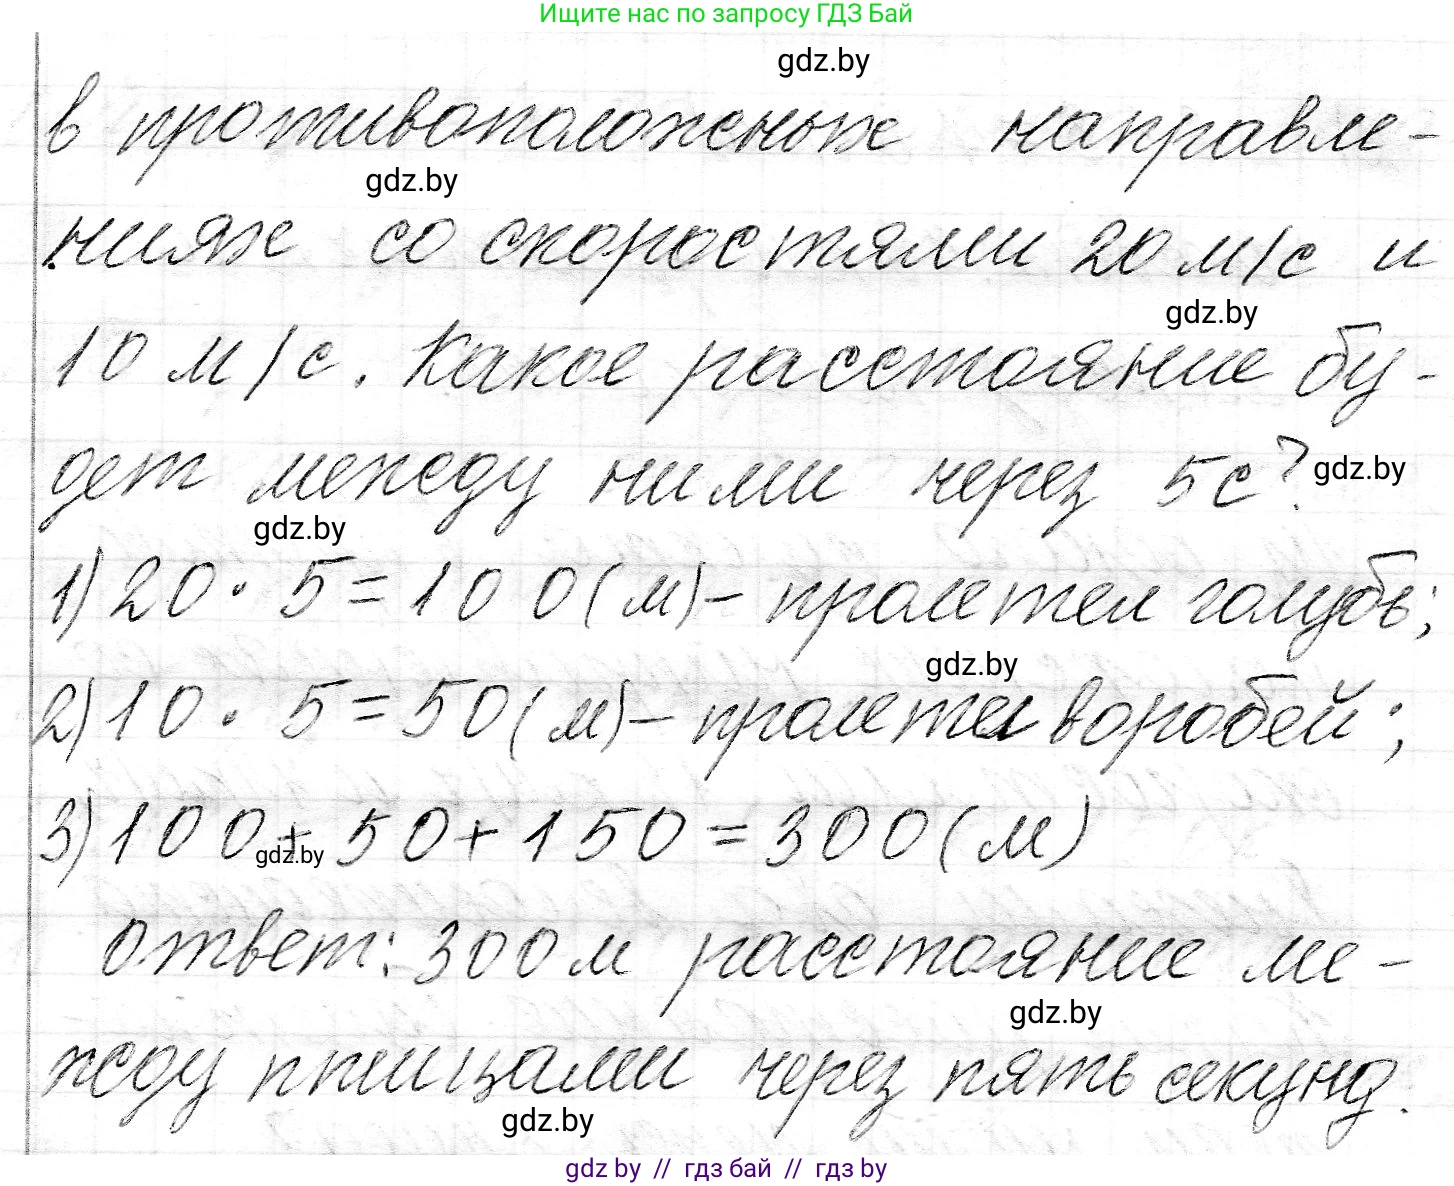 Ищите нас по запросу ГДЗ Бай
gdz.by
в противоположных направле-
gdz.by
ниях со скоростями 20 м/с и
gdz.by
10 м/с. Какое расстояние бу-
дет между ними через 5с?
gdz.by
gdz.by
1) 20 · 5 = 100 (м) – пролетел голубь;
gdz.by
2) 10 · 5 = 50 (м) – пролетел воробей;
3) 100 + 50 + 150 = 300 (м)
gdz.by
ответ: 300 м расстояние ме-
gdz.by
жду птицами через пять секунд.
gdz.by
gdz by // гдз бай // гдз by